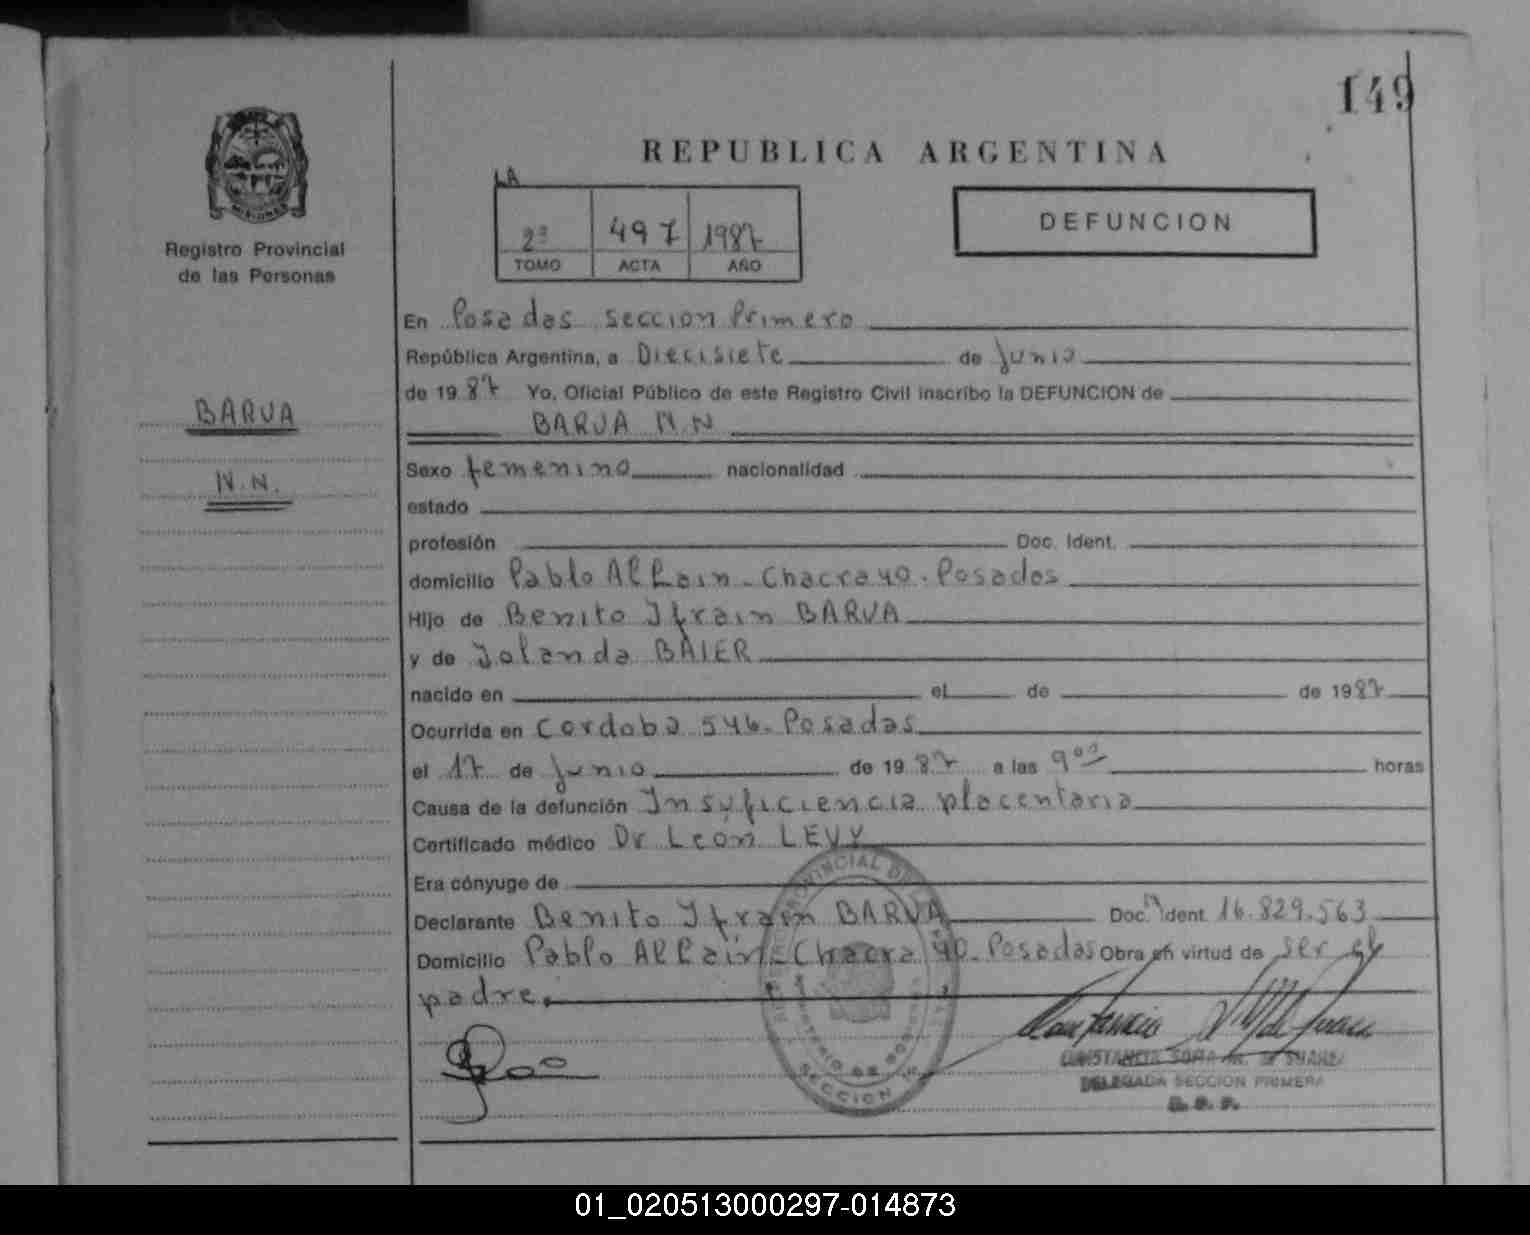 149
REPUBLICA ARGENTINA
LA
2º 497 1987
TOMO ACTA AÑO
DEFUNCION
MISIONES
Registro Provincial
de las Personas
BARUA
N.N.
En Posadas seccion Primero
República Argentina, a Diecisiete de Junio
de 1987 Yo, Oficial Público de este Registro Civil inscribo la DEFUNCION de
BARUA N.N
Sexo femenino nacionalidad
estado
profesión Doc. Ident.
domicilio Pablo Allain - Chacra 40. Posadas
Hijo de Benito Ifrain BARUA
y de Jolanda BAIER
nacido en el de de 1987
Ocurrida en Cordoba 546. Posadas
el 17 de Junio de 1987 a las 9ºº horas
Causa de la defunción Insuficiencia placentaria
Certificado médico Dr Leon LEVY
Era cónyuge de
Declarante Benito Ifrain BARUA Doc. Ident 16.829.563
Domicilio Pablo Allain - Chacra 40. Posadas Obra en virtud de ser el
padre.
CONSTANCIA SOFIA M. de SUAREZ
DELEGADA SECCION PRIMERA
R. P. P.
01_020513000297-014873